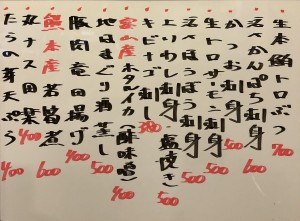 生本鮪トロぶつ 700
活〆かんぱち刺身
かつお刺身 500
生トロサーモン刺身 500
活〆ほうぼう刺身 500
刺身・塩焼き 500
キビナゴ刺し 380
富山産ホタルイカ(酢味噌) 400
地はまぐり酒蒸し 500
豚肉竜田揚げ 400
熊本産若筍煮 600
丸ナス田楽 400
たらの芽天ぷら 400